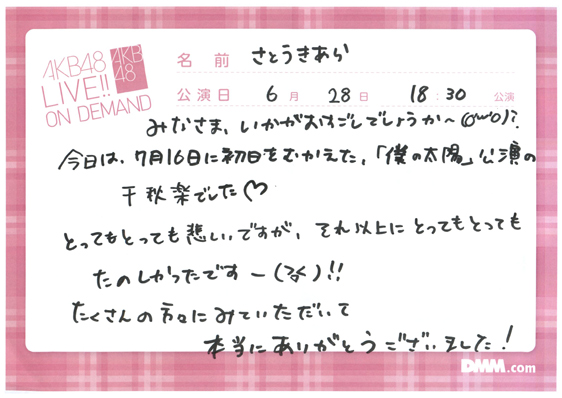 AKB48
LIVE!!
ON DEMAND
AKB
48
名前 さとうきあら
公演日 6月 28日 18:30 公演
みなさま、いかがおすごしでしょうか〜(○'ω'○)?
今日は、7月16日に初日をむかえた、「僕の太陽」公演の
千秋楽でした♡
とってもとっても悲しいですが、それ以上にとってもとっても
たのしかったですー(≧≦)!!
たくさんの方々にみていただいて
本当にありがとうございました!
DMM.com